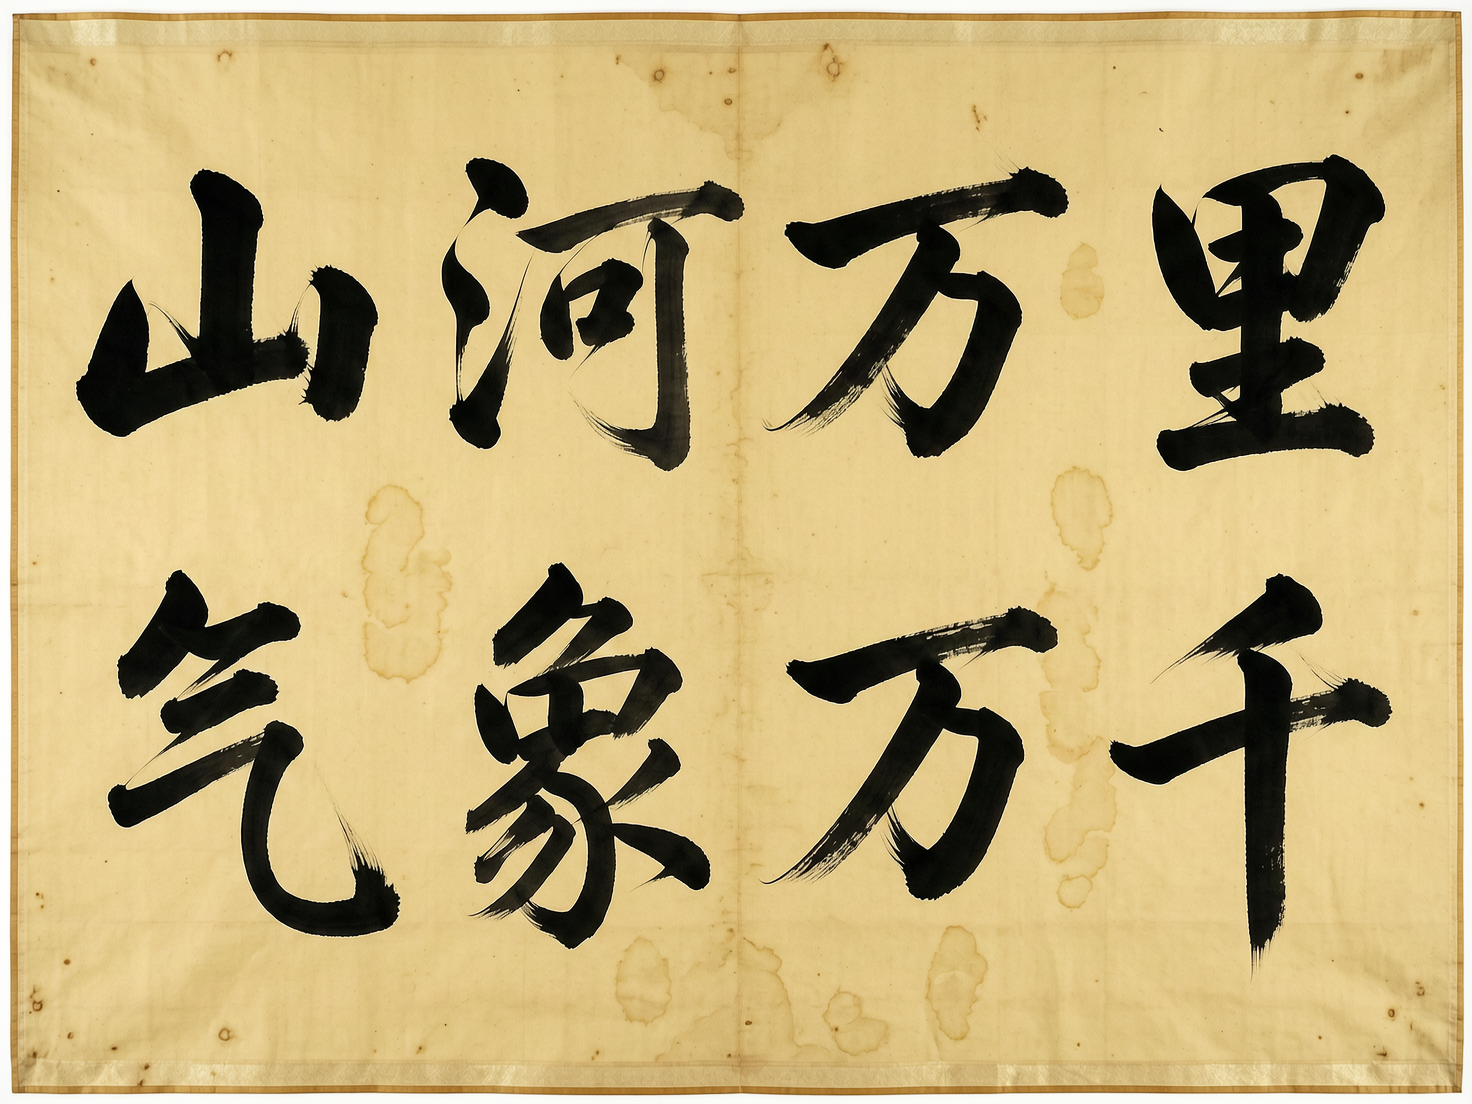 山河万里
气象万千